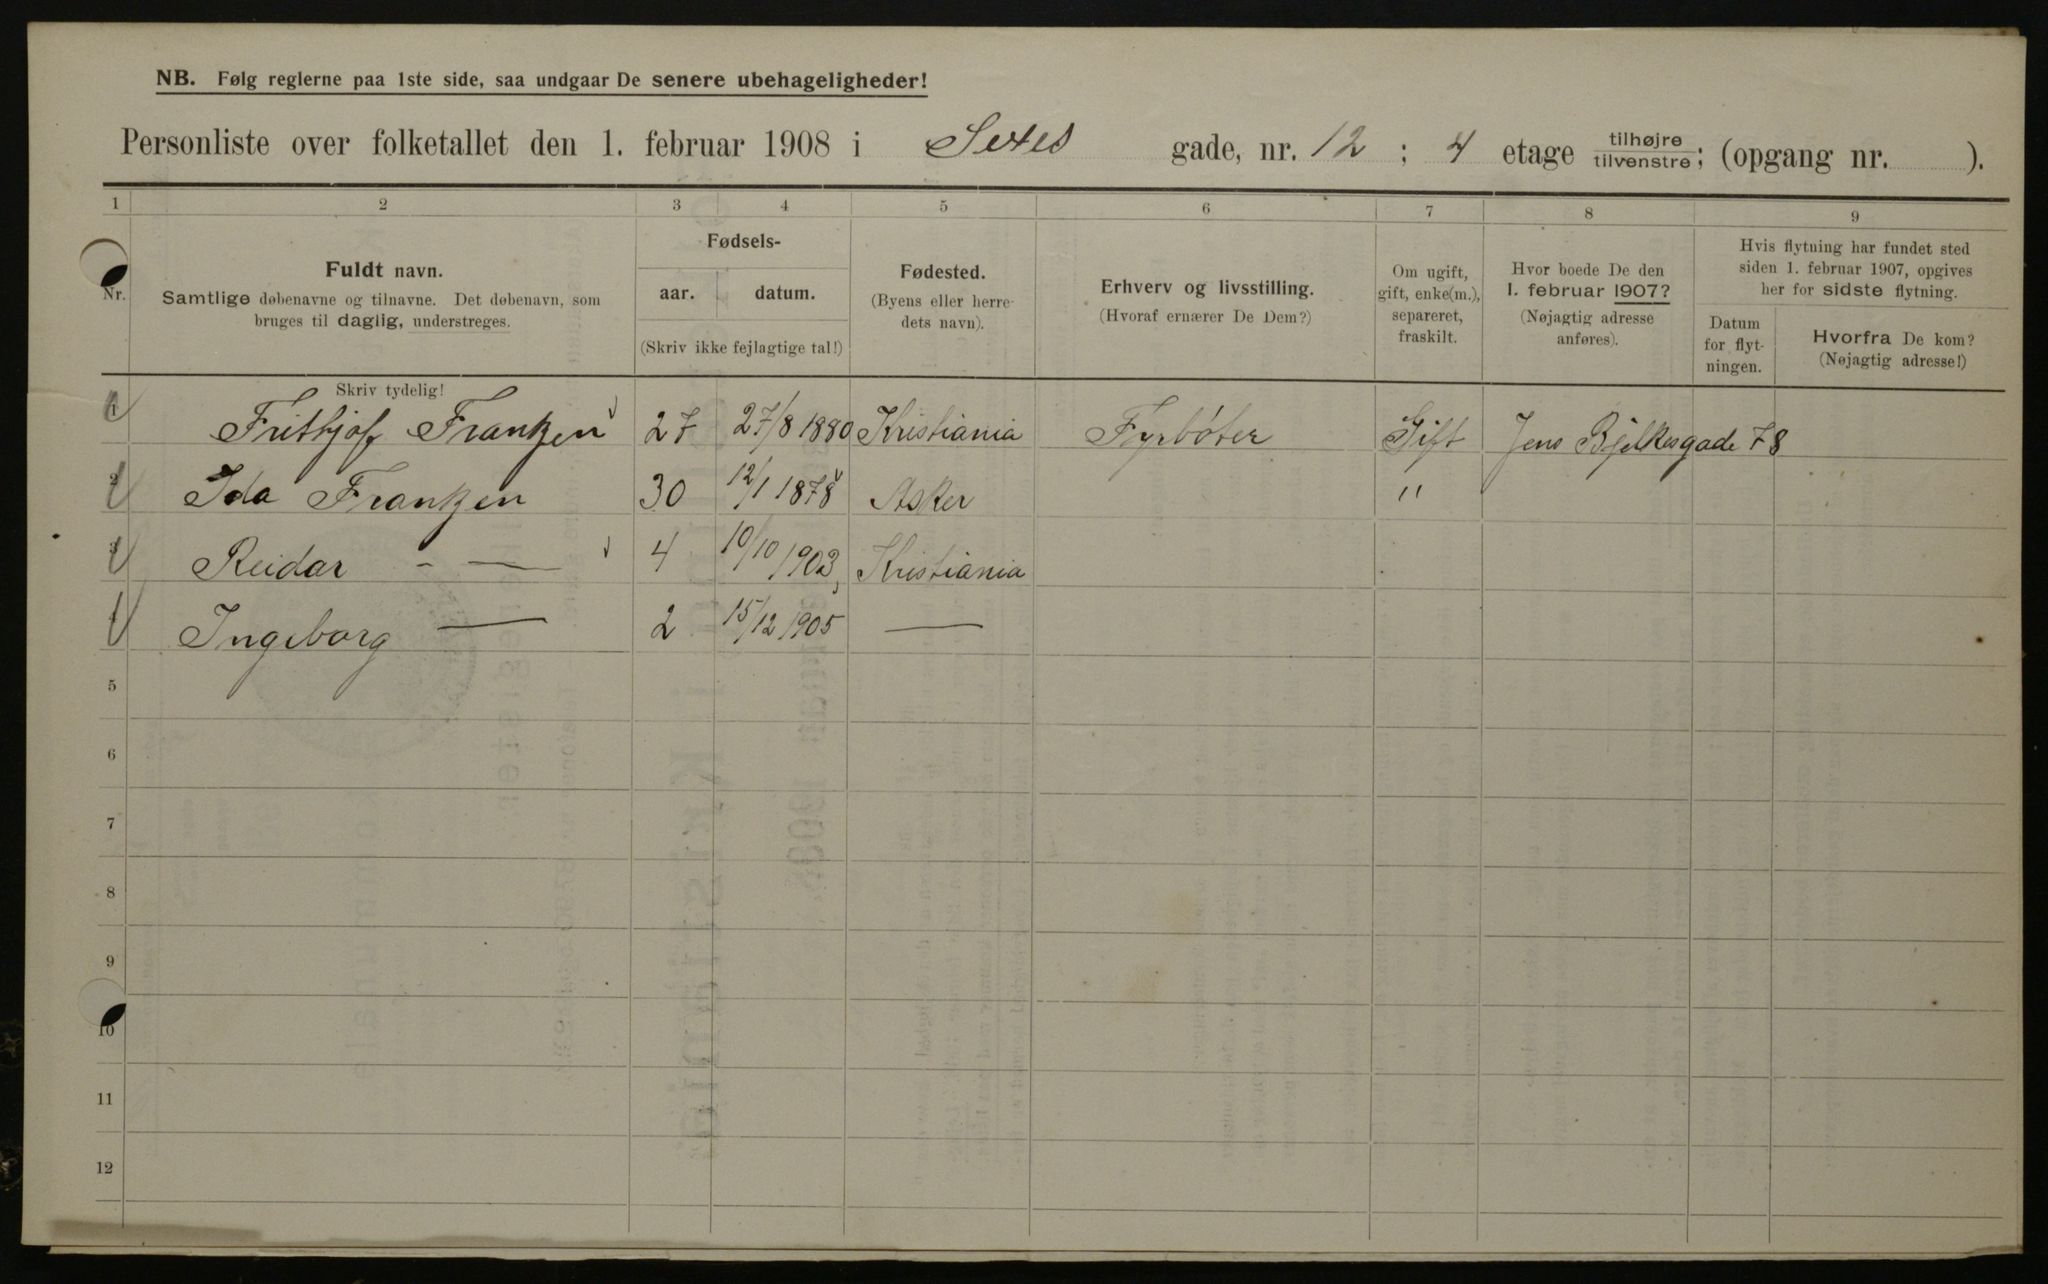 NB. Følg reglerne paa 1ste side, saa undgaar De senere ubehageligheder!
Personliste over folketallet den 1. februar 1908 i Sexes gade, nr. 12 ; 4 etage tilhøjre tilvenstre; (opgang nr. ).
1 2 3 4 5 6 7 8 9
Nr. Fuldt navn. Samtlige døbenavne og tilnavne. Det døbenavn, som bruges til daglig, understreges.
Fødsels-
aar. datum.
(Skriv ikke fejlagtige tal!)
Fødested. (Byens eller herredets navn).
Erhverv og livsstilling. (Hvoraf ernærer De Dem?)
Om ugift, gift, enke(m.), separeret, fraskilt.
Hvor boede De den 1. februar 1907? (Nøjagtig adresse anføres).
Hvis flytning har fundet sted siden 1. februar 1907, opgives her for sidste flytning.
Datum for flytningen.
Hvorfra De kom? (Nøjagtig adresse!)
Skriv tydelig!
1 Frithjof Frantzen 27 27/8 1880 Kristiania Fyrbøter Gift Jens Bjelkesgade 78
2 Ida Frantzen 30 12/1 1878 Asker "
3 Reidar - — 4 10/10 1903 Kristiania
4 Ingeborg — 2 15/12 1905 —
5
6
7
8
9
10
11
12